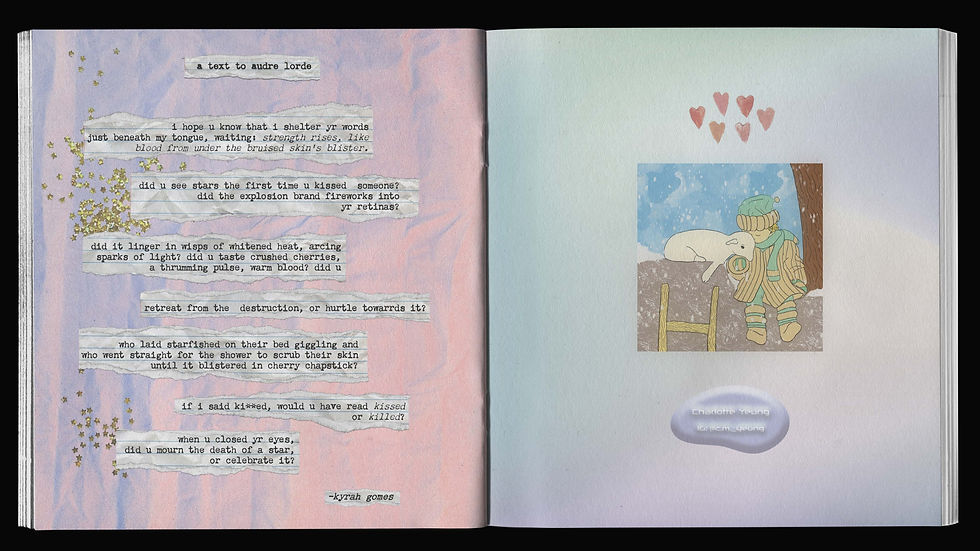 a text to audre lorde
i hope u know that i shelter yr words
just beneath my tongue, waiting: strength rises, like
blood from under the bruised skin's blister.
did u see stars the first time u kissed someone?
did the explosion brand fireworks into
yr retinas?
did it linger in wisps of whitened heat, arcing
sparks of light? did u taste crushed cherries,
a thrumming pulse, warm blood? did u
retreat from the destruction, or hurtle towarrds it?
who laid starfished on their bed giggling and
who went straight for the shower to scrub their skin
until it blistered in cherry chapstick?
if i said ki**ed, would u have read kissed
or killed?
when u closed yr eyes,
did u mourn the death of a star,
or celebrate it?
-kyrah gomes
Charlotte Yeung